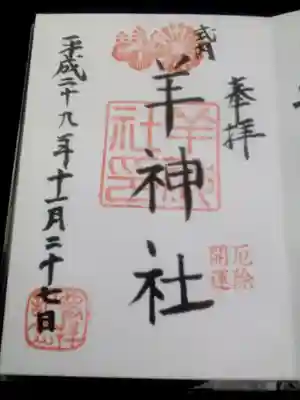 式内
奉拝
厄除
開運
羊神社
平成二十九年十一月二十七日